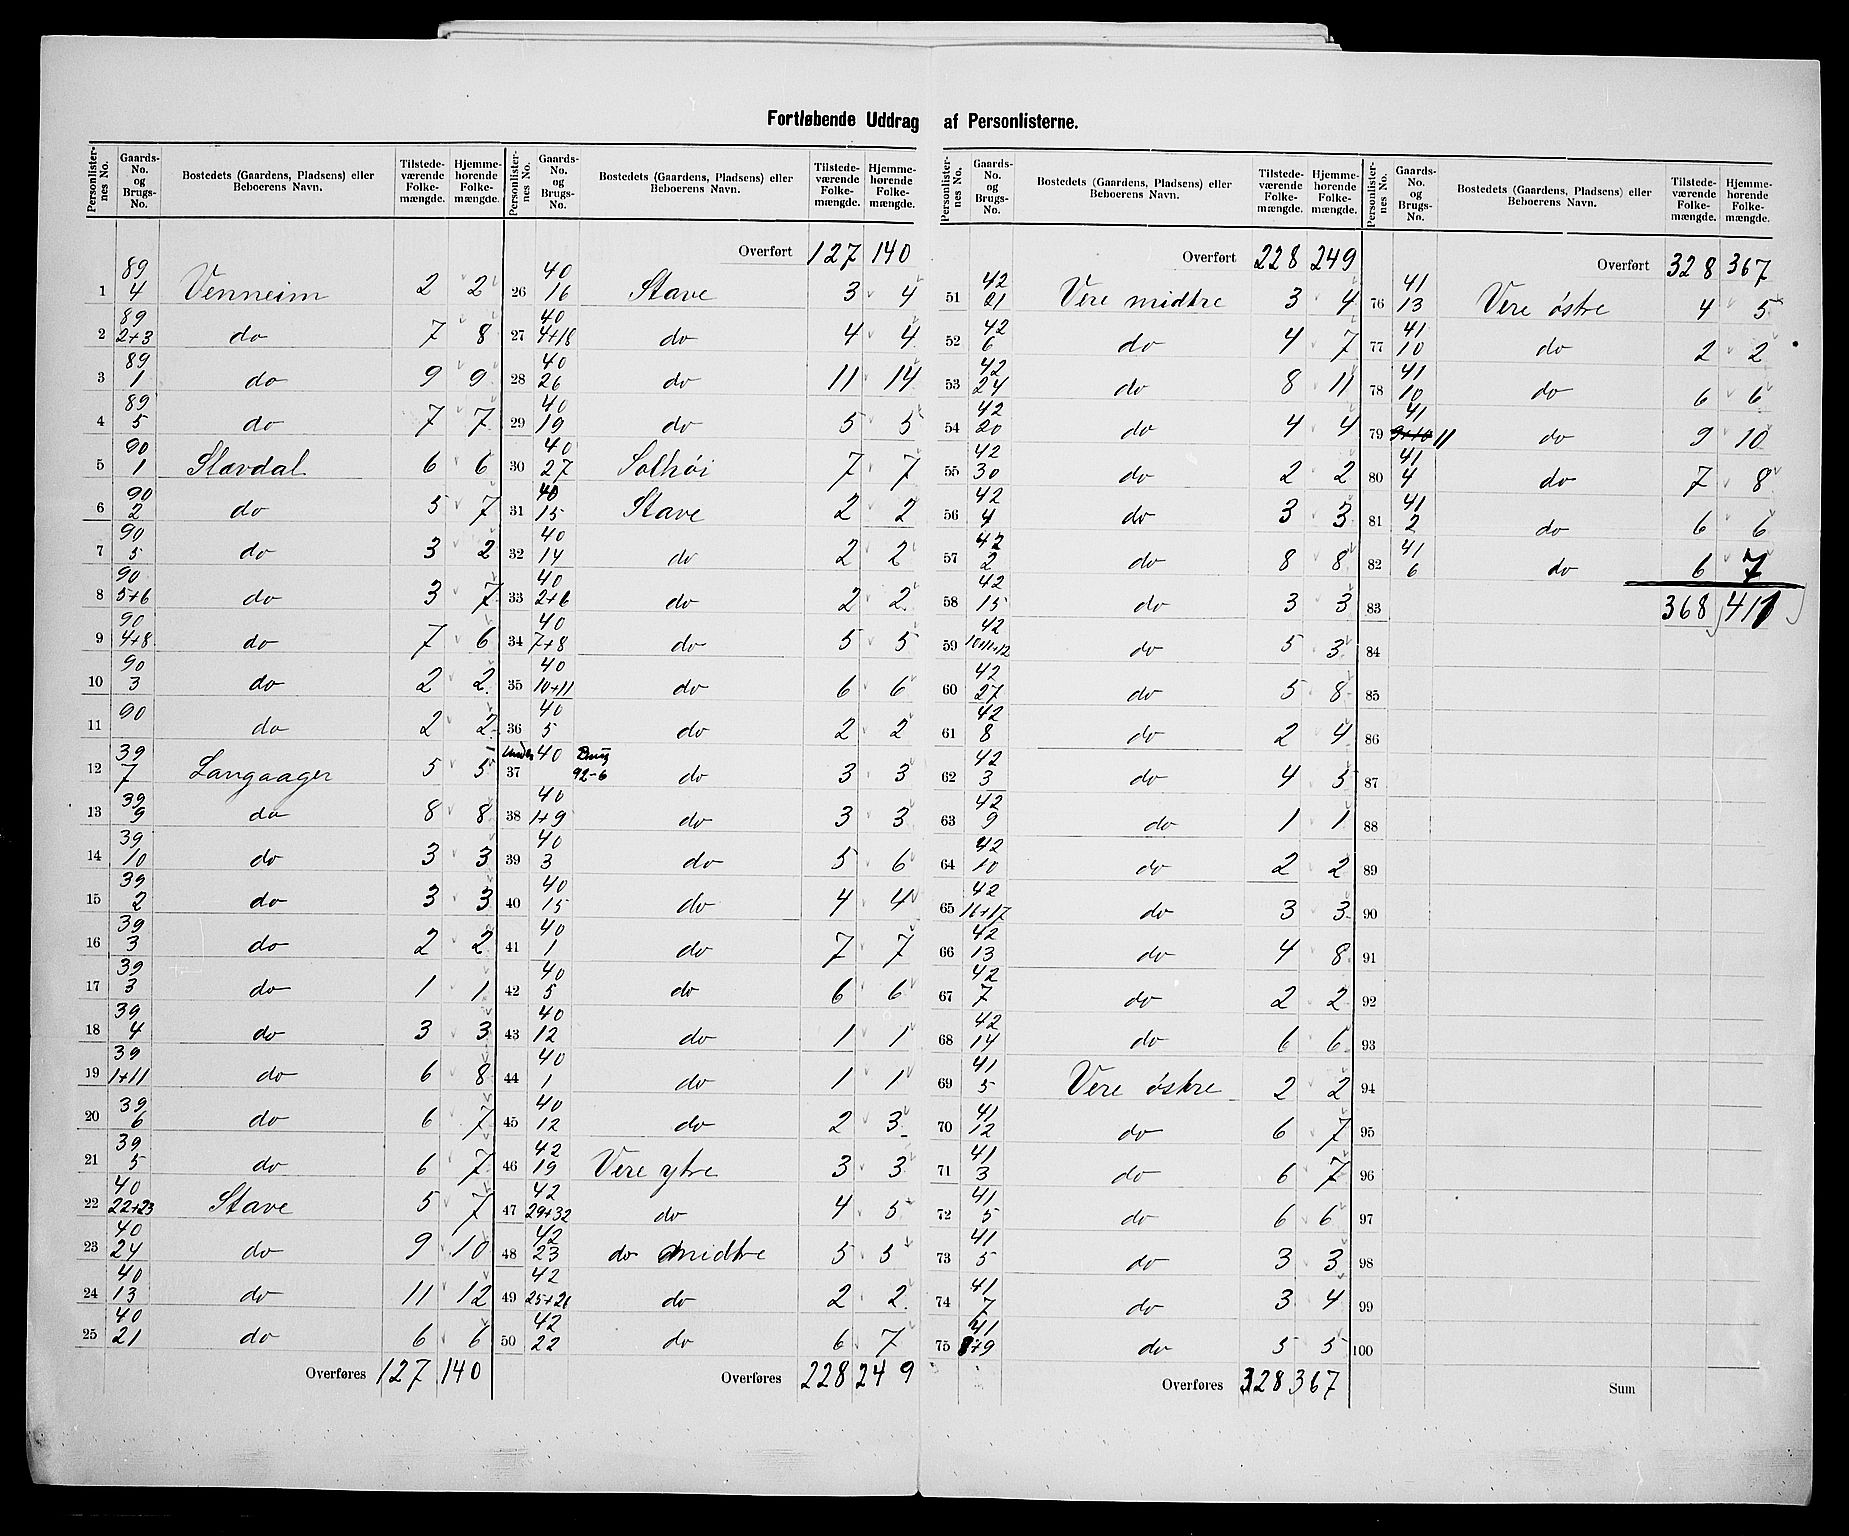 Fortløbende Uddrag af Personlisterne.
Personlister-nes No. | Gaards-No. og Brugs-No. | Bostedets (Gaardens, Pladsens) eller Beboerens Navn. | Tilstede-værende Folke-mængde. | Hjemme-hørende Folke-mængde.
1 | 89 4 | Venneim | 2 | 2
2 | 89 2+3 | do | 7 | 8
3 | 89 1 | do | 9 | 9
4 | 89 5 | do | 7 | 7
5 | 90 1 | Slævdal | 6 | 6
6 | 90 2 | do | 5 | 7
7 | 90 5 | do | 3 | 2
8 | 90 5+6 | do | 3 | 7
9 | 90 4+8 | do | 7 | 6
10 | 90 3 | do | 2 | 2
11 | 90 | do | 2 | 2
12 | 39 7 | Langaager | 5 | 5
13 | 39 9 | do | 8 | 8
14 | 39 10 | do | 3 | 3
15 | 39 2 | do | 3 | 3
16 | 39 3 | do | 2 | 2
17 | 39 3 | do | 1 | 1
18 | 39 4 | do | 3 | 3
19 | 39 1+11 | do | 6 | 8
20 | 39 6 | do | 6 | 7
21 | 39 5 | do | 6 | 7
22 | 40 22+23 | Stave | 5 | 7
23 | 40 24 | do | 9 | 10
24 | 40 13 | do | 11 | 12
25 | 40 21 | do | 6 | 6
Overføres 127 140
Personlister-nes No. | Gaards-No. og Brugs-No. | Bostedets (Gaardens, Pladsens) eller Beboerens Navn. | Tilstede-værende Folke-mængde. | Hjemme-hørende Folke-mængde.
Overført 127 140
26 | 40 16 | Stave | 3 | 4
27 | 40 4+18 | do | 4 | 4
28 | 40 26 | do | 11 | 14
29 | 40 19 | do | 5 | 5
30 | 40 27 | Solhøi | 7 | 7
31 | 40 15 | Stave | 2 | 2
32 | 40 14 | do | 2 | 2
33 | 40 2+6 | do | 2 | 2
34 | 40 7+8 | do | 5 | 5
35 | 40 10+11 | do | 6 | 6
36 | 40 5 | do | 2 | 2
37 | Under 40 92-6 | do | 3 | 3
38 | 40 1+9 | do | 3 | 3
39 | 40 3 | do | 5 | 6
40 | 40 15 | do | 4 | 4
41 | 40 1 | do | 7 | 7
42 | 40 5 | do | 6 | 6
43 | 40 12 | do | 1 | 1
44 | 40 1 | do | 1 | 1
45 | 40 12 | do | 2 | 3
46 | 42 19 | Vere ytre | 3 | 3
47 | 42 29+32 | do | 4 | 5
48 | 42 23 | do midtre | 5 | 5
49 | 42 25+26 | do | 2 | 2
50 | 42 22 | do | 6 | 7
Overføres 228 249
Personlister-nes No. | Gaards-No. og Brugs-No. | Bostedets (Gaardens, Pladsens) eller Beboerens Navn. | Tilstede-værende Folke-mængde. | Hjemme-hørende Folke-mængde.
Overført 228 249
51 | 42 21 | Vere midtre | 3 | 4
52 | 42 6 | do | 4 | 7
53 | 42 24 | do | 8 | 11
54 | 42 20 | do | 4 | 4
55 | 42 30 | do | 2 | 2
56 | 42 4 | do | 3 | 3
57 | 42 2 | do | 8 | 8
58 | 42 15 | do | 3 | 3
59 | 42 10+11+12 | do | 5 | 3
60 | 42 27 | do | 5 | 8
61 | 42 8 | do | 2 | 4
62 | 42 3 | do | 4 | 5
63 | 42 9 | do | 1 | 1
64 | 42 10 | do | 2 | 2
65 | 42 16+17 | do | 3 | 3
66 | 42 13 | do | 4 | 8
67 | 42 7 | do | 2 | 2
68 | 42 14 | do | 6 | 6
69 | 41 5 | Vere østre | 2 | 2
70 | 41 12 | do | 6 | 7
71 | 41 3 | do | 6 | 7
72 | 41 5 | do | 6 | 6
73 | 41 5 | do | 3 | 3
74 | 41 7 | do | 3 | 4
75 | 41 8+9 | do | 5 | 5
Overføres 328 367
Personlister-nes No. | Gaards-No. og Brugs-No. | Bostedets (Gaardens, Pladsens) eller Beboerens Navn. | Tilstede-værende Folke-mængde. | Hjemme-hørende Folke-mængde.
Overført 328 367
76 | 41 13 | Vere østre | 4 | 5
77 | 41 10 | do | 2 | 2
78 | 41 10 | do | 6 | 6
79 | 41 9+10 11 | do | 9 | 10
80 | 41 4 | do | 7 | 8
81 | 41 2 | do | 6 | 6
82 | 41 6 | do | 6 | 7
83 | 368 | 411
84
85
86
87
88
89
90
91
92
93
94
95
96
97
98
99
100
Sum